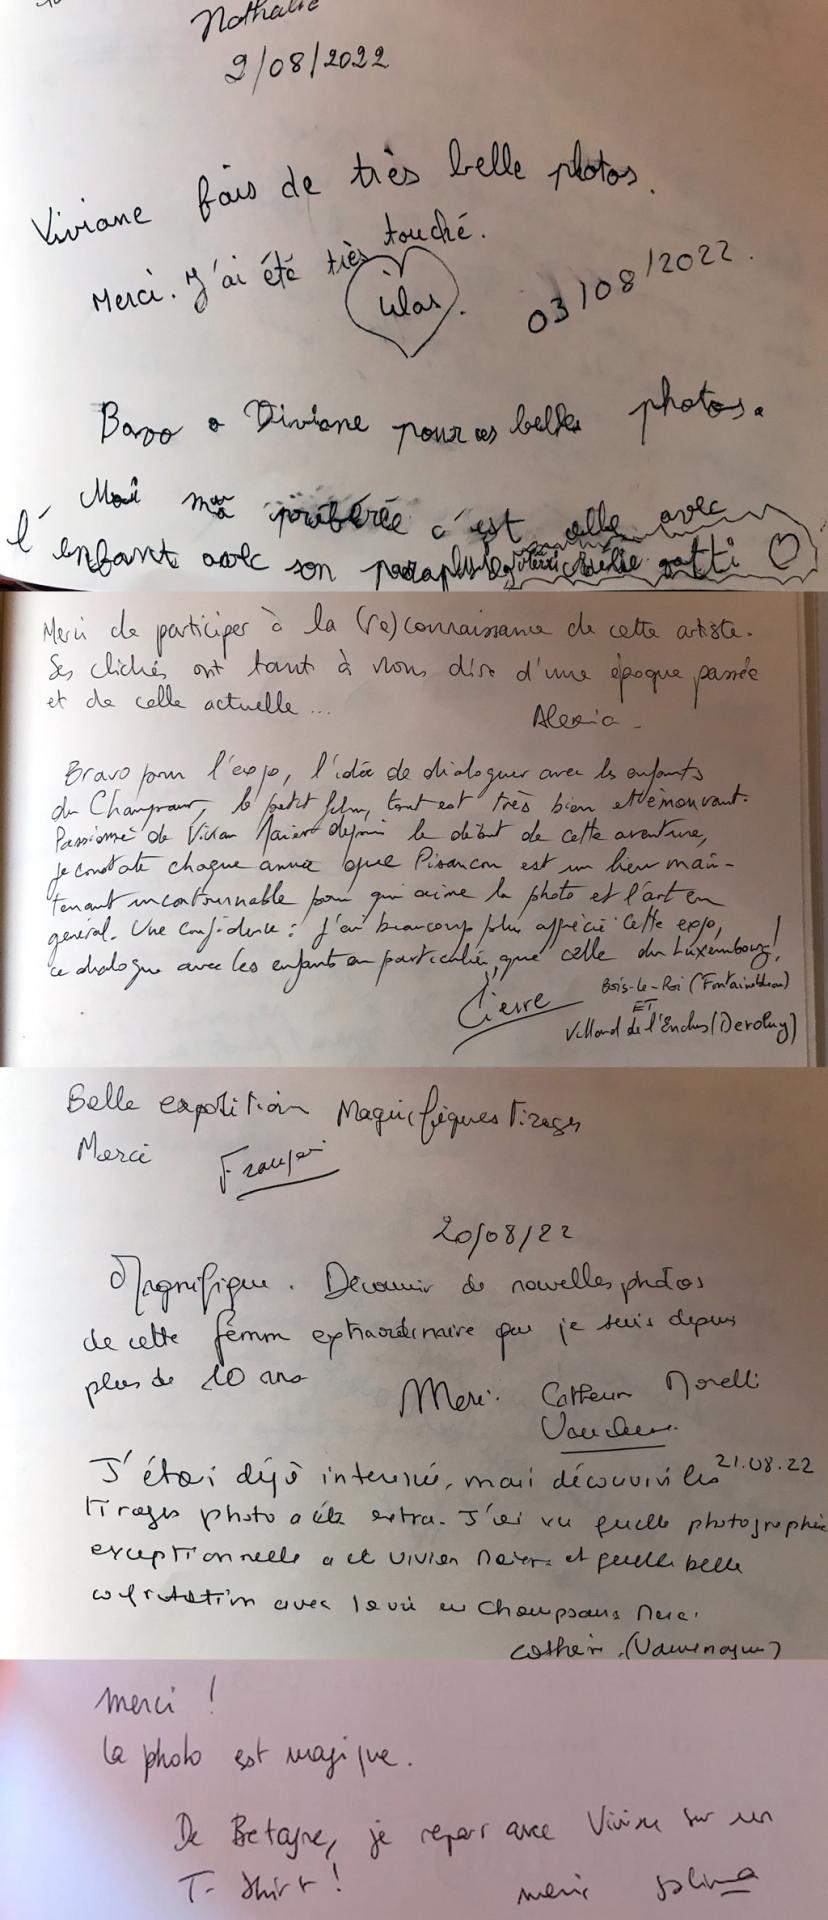 Nathalie
9/08/2022
Viviane fais de très belle photos.
Merci. J'ai été très touché.
03/08/2022.
Bavo a Viviane pour ces belles photos.
Moi ma préférée c'est celle avec
l'enfant avec son parapluie gatti
Merci de participer à la (re)connaissance de cette artiste.
Ses clichés ont tant à nous dire d'une époque passée
et de celle actuelle...
Alexia
Bravo pour l'expo, l'idée de dialoguer avec les enfants
du Champsaur, le petit film, tout est très bien et émouvant.
Passionné de Vivian Maier depuis le début de cette aventure,
je constate chaque année que Pisançon est un lieu main-
tenant incontournable pour qui aime la photo et l'art en
général. Une confidence : j'ai beaucoup plus apprécié cette expo,
ce dialogue avec les enfants en particulier, que celle du Luxembourg!
Pierre
Bois-le-Roi (Fontainebleau)
ET
(Devoluy)
Belle exposition Magnifiques tirages
Merci
20/08/22
Magnifique. Découvrir de nouvelles photos
de cette femme extraordinaire que je suis depuis
plus de 10 ans
Merci. Morelli
21.08.22
J'étai déjà interessé, mai découvrir les
tirages photo a été extra. J'ai vu quelle photographe
exceptionnelle a été Vivien Maier et quelle belle
avec la vie en Champsaur Merci
merci !
la photo est magique.
De Betagne, je repars avec Viviane sur un
T-shirt !
merci